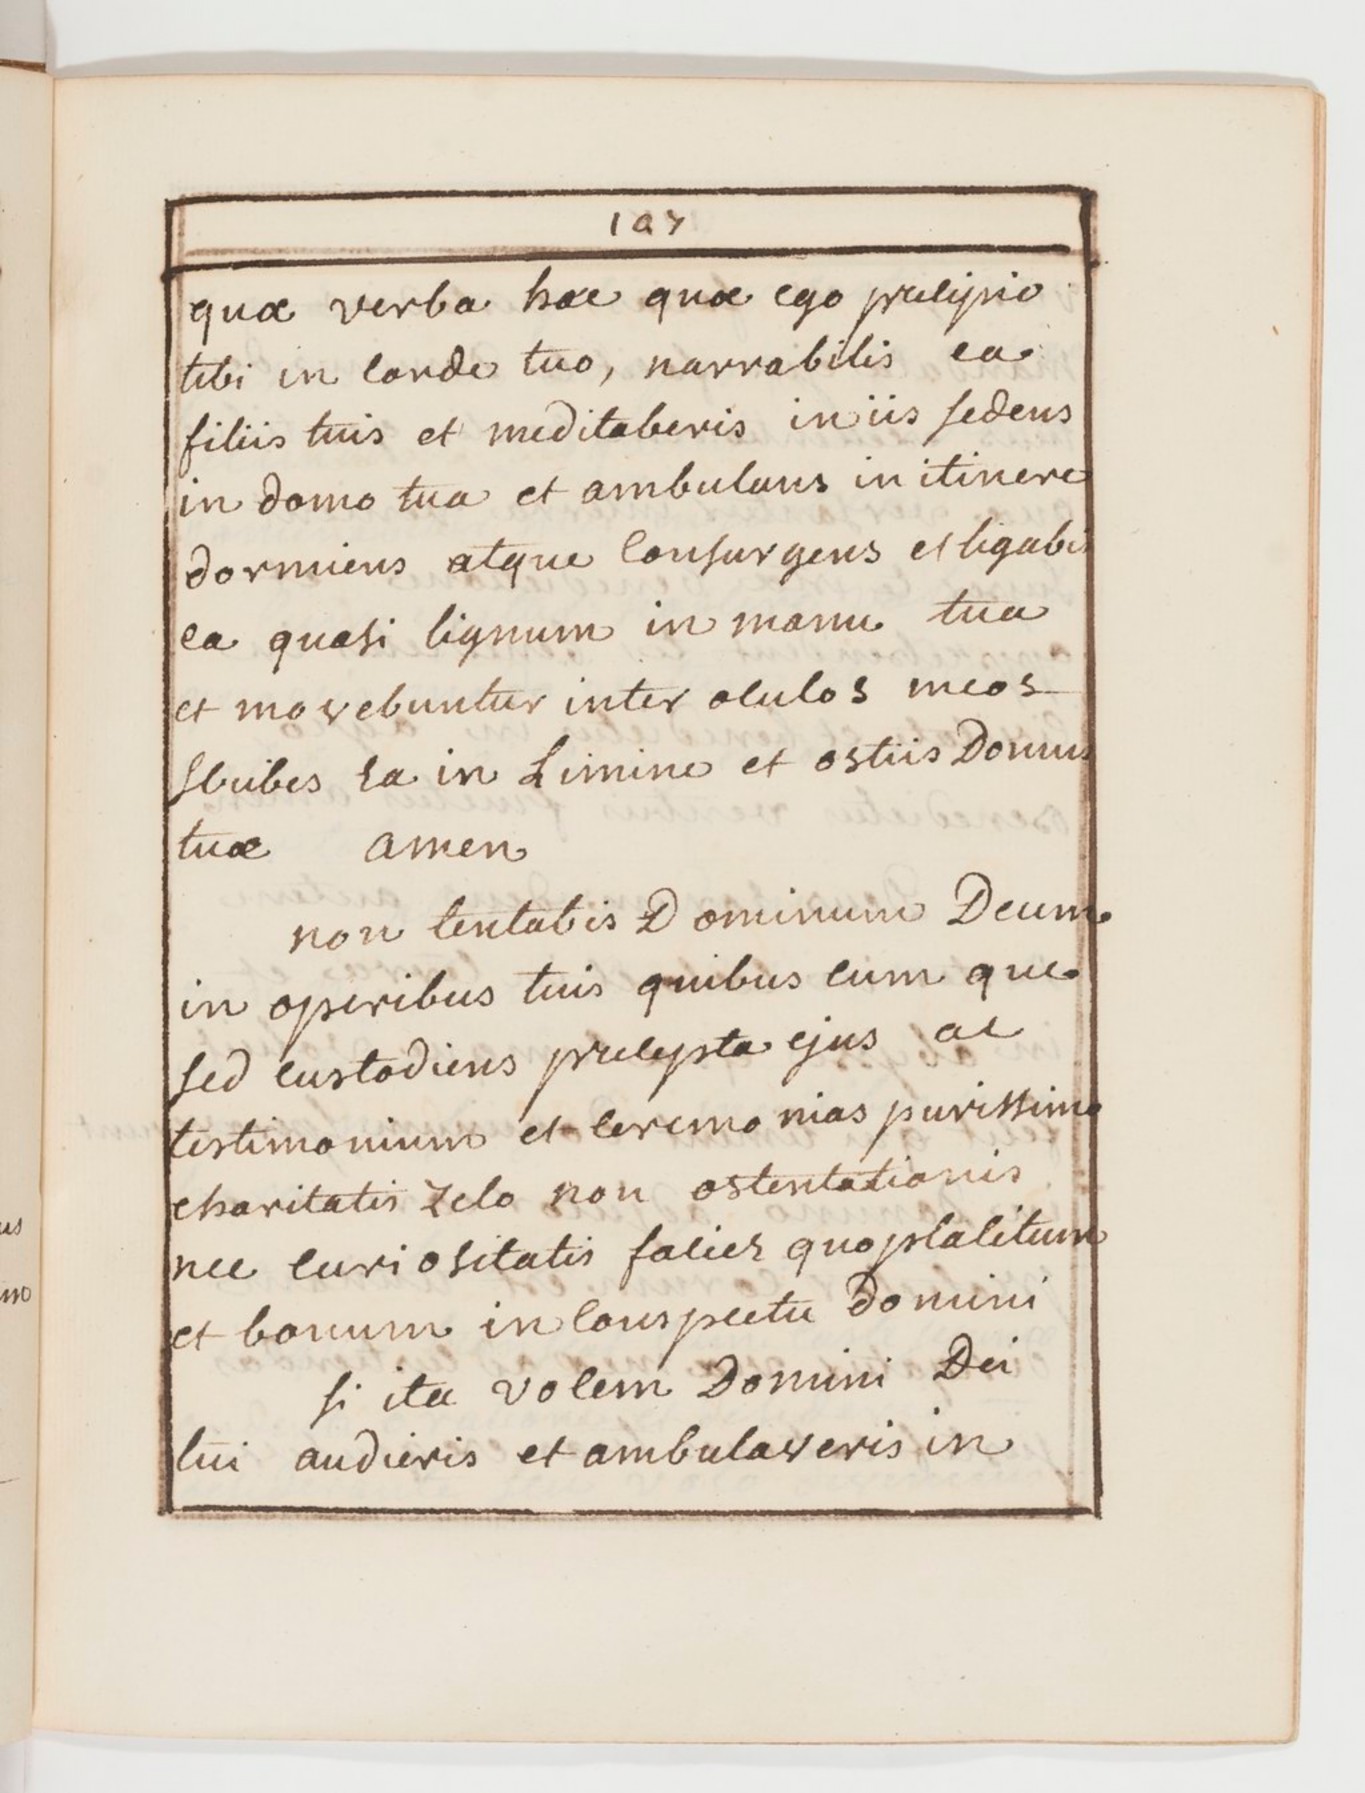 107
quæ verba hæc quæ ego precipio
tibi in corde tuo, narrabilis ea
filiis tuis et meditaberis in iis sedens
in domo tua et ambulans in itinere
dormiens atque consurgens et ligabis
ea quasi lignum in manu tua
et movebuntur inter oculos meos
scribes ea in Limine et ostiis Domus
tuæ amen
non tentabis Dominum Deum
in operibus tuis quibus cum que
sed custodiens precepta ejus ac
testimonium et ceremonias purissimo
charitatis zelo non ostentationis
nec curiositatis facies quo placitum
et bonum in conspectu Domini
si ita vocem Domini Dei
tui audieris et ambulaveris in